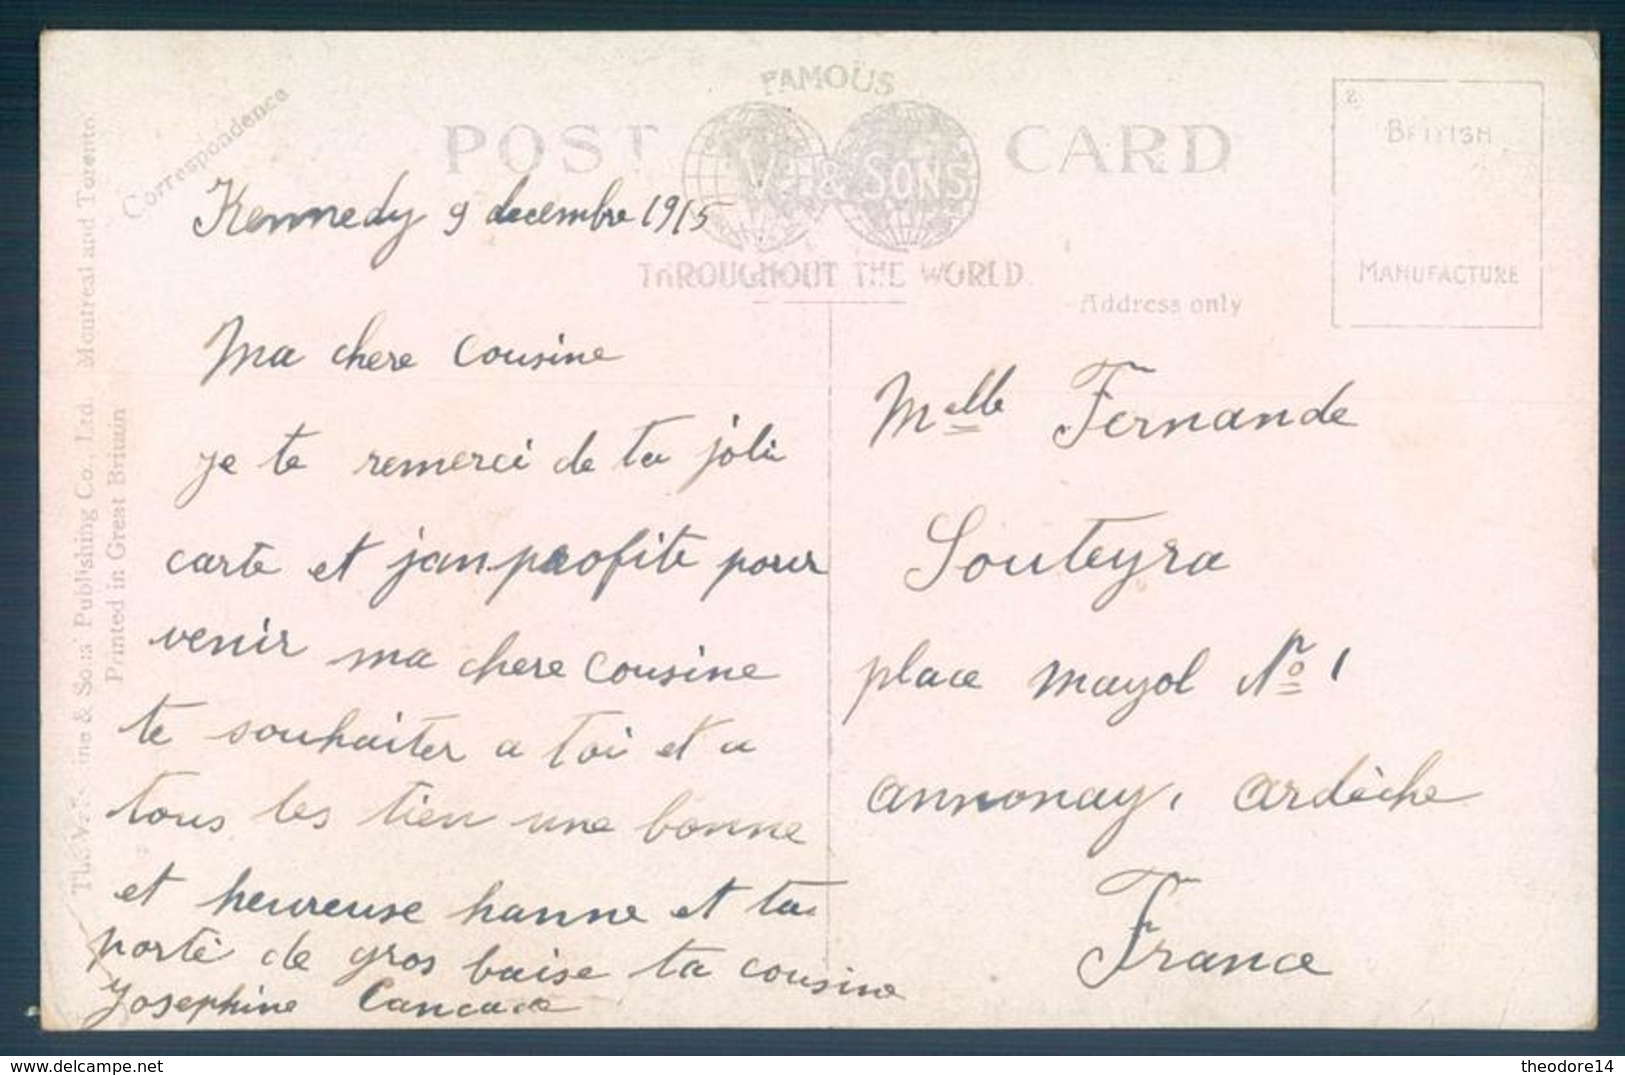 FAMOUS
POST CARD
& SONS
THROUGHOUT THE WORLD
Correspondence
Address only
BRITISH
MANUFACTURE
Kennedy 9 decembre 1915
Ma chere cousine
je te remerci de ta joli
carte et jan profite pour
venir ma chere cousine
te souhaiter a toi et a
tous les tien une bonne
et heureuse hanne et ta
porte de gros baise ta cousine
Josephine
Melle Fernande
Souteyra
place mayol No 1
annonay, ardèche
France
& Sons Publishing Co., Ltd., Montreal and Toronto
Printed in Great Britain
delcampe.net
theodore14